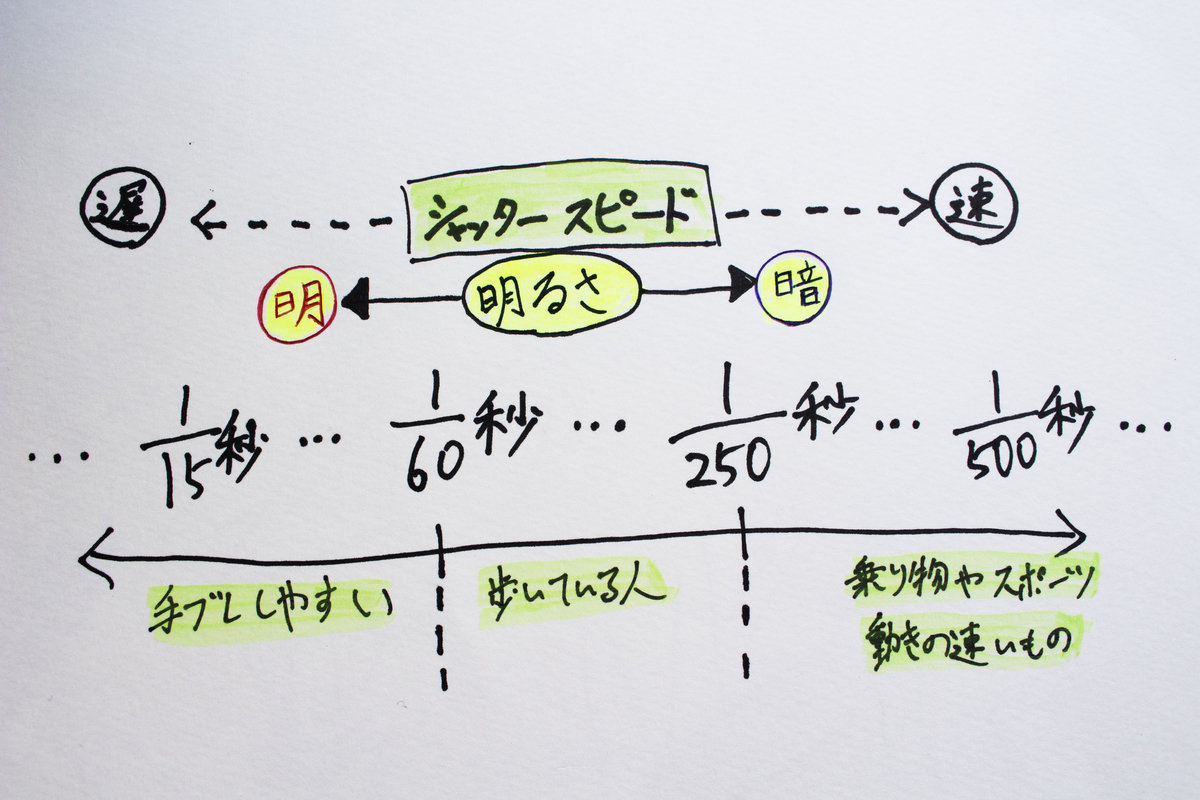 遅 シャッタースピード 速
明 明るさ 暗
... 1/15秒 ... 1/60秒 ... 1/250秒 ... 1/500秒 ...
手ブレしやすい 歩いている人 乗り物やスポーツ
動きの速いもの